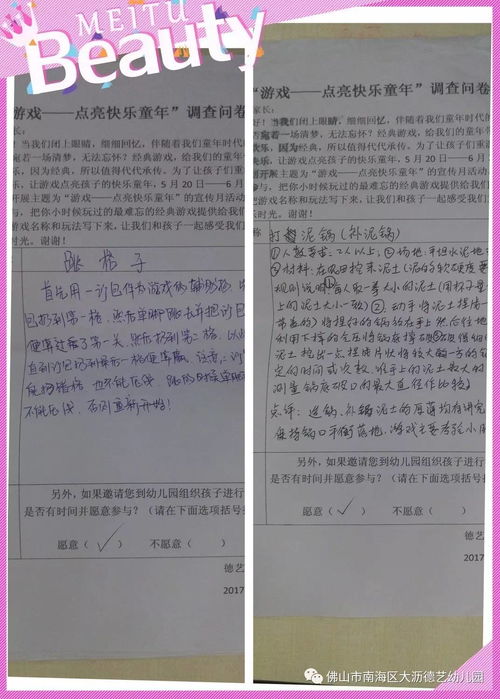 MEITU
Beauty
游戏——点亮快乐童年”调查问卷
家长:
好!当我们闭上眼睛,细细回忆,伴随着我们童年时代的
宛若一场清梦,无法忘怀?经典游戏,给我们的童年
因为经典,所以值得代代承传。为了让孩子们
乐,让游戏点亮孩子的快乐童年,5月20日——6月
开展主题为“游戏——点亮快乐童年”的宣传月活动
与,把你小时候玩过的最难忘的经典游戏提供给我们
名称和玩法写下来,让我们和孩子一起感受我们
时光。谢谢!
跳格子
首先用一沙包作为游戏的辅助物,
包扔到第一格,然后单脚跳去并把沙包
便算过了第一关,然后扔到第二格,以
直到沙包扔到最后一格便算赢。注意:沙
能踏格格,也不能压线,跳时
不能压线,否则重新开始!
另外,如果邀请您到幼儿园组织孩子进行
是否有时间并愿意参与?(请在下面选项括号
愿意(✓) 不愿意( )
德艺
2017
“游戏——点亮快乐童年”调查问卷
家长:
好!当我们闭上眼睛,细细回忆,伴随着我们童年时代
宛若一场清梦,无法忘怀?经典游戏,给我们的童年
快乐,因为经典,所以值得代代承传。为了让孩子们
让游戏点亮孩子的快乐童年,5月20日——6月
开展主题为“游戏——点亮快乐童年”的宣传月活动
与,把你小时候玩过的最难忘的经典游戏提供给我们
游戏名称和玩法写下来,让我们和孩子一起感受我们
乐时光。谢谢!
称
打泥锅(补泥锅)
①人数要求:2人以上,②场地:平坦水泥地
③材料:在农田挖来泥土(泥的软硬度要
规则说明①每人取一样大小的泥土(
上的泥土大小一致)②:动手将泥土捏成一
将捏好的锅放在手上然后往地
利用下摔的气压将锅底摔破
泥土挖出一点捏成片状将较大的一方的
定的时间或次数,谁手上的泥土最大的
测量锅底破口的最大直径作比较)
点评:这锅、补锅泥土的厚薄均有讲究
保持锅口平衡落地,游戏主要考验小朋
另外,如果邀请您到幼儿园组织孩子进行
是否有时间并愿意参与?(请在下面选项括号
愿意(✓) 不愿意( )
德艺
2017
佛山市南海区大沥德艺幼儿园